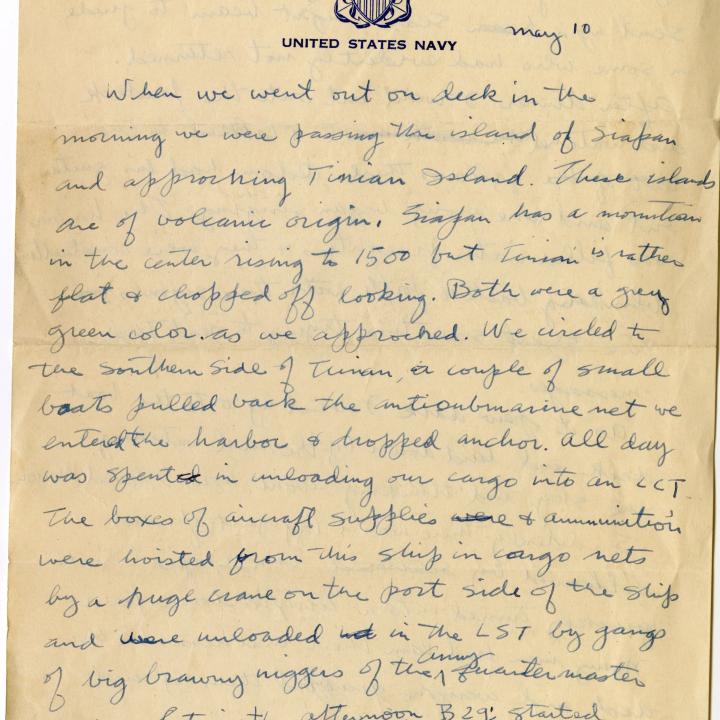 May 10
UNITED STATES NAVY
When we went out on deck in the
morning we were passing the island of Siapan
and approching Tinian Island. These islands
are of volcanic origin. Siapan has a mountain
in the center rising to 1500 but Tinian is rather
flat & chopped off looking. Both were a grey
green color. as we approched. We circled to
the southern side of Tinian, a couple of small
boats pulled back the antisubmarine net we
entered the harbor & dropped anchor. All day
was spented in unloading our cargo into an LCT
The boxes of aircraft supplies were & ammunition
were hoisted from this ship in cargo nets
by a huge crane on the port side of the ship
and were unloaded in the LST by gangs
of big brawny niggers of the Army Quartermaster
in the afternoon B29s started